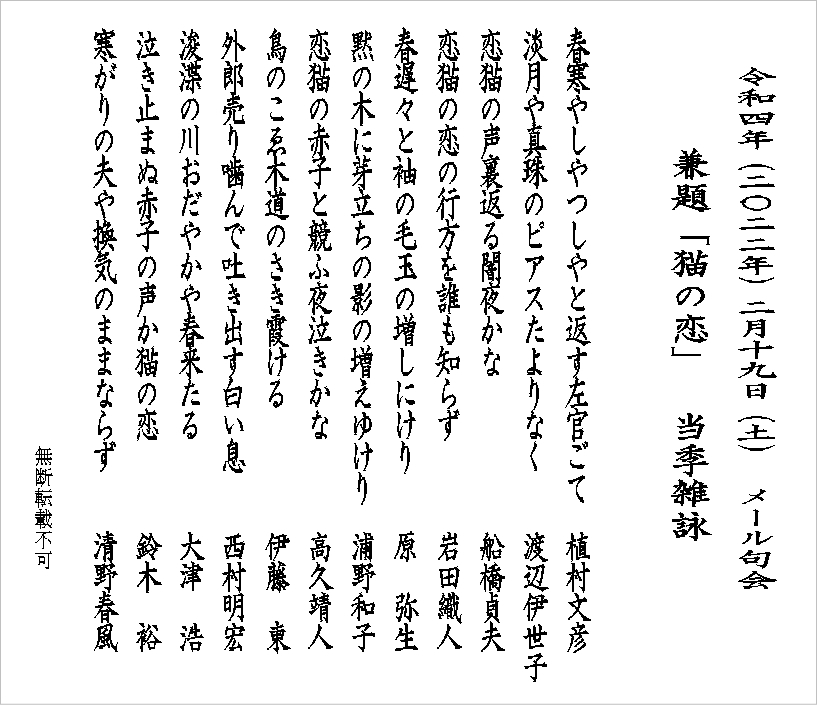 令和四年(二〇二二年)二月十九日(土) メール句会
兼題「猫の恋」 当季雑詠
春寒やしやつしやと返す左官ごて 植村文彦
淡月や真珠のピアスたよりなく 渡辺伊世子
恋猫の声裏返る闇夜かな 船橋貞夫
恋猫の恋の行方を誰も知らず 岩田織人
春遅々と袖の毛玉の増しにけり 原 弥生
黙の木に芽立ちの影の増えゆけり 浦野和子
恋猫の赤子と競ふ夜泣きかな 高久靖人
鳥のこゑ木道のさき霞ける 伊藤 東
外郎売り噛んで吐き出す白い息 西村明宏
浚渫の川おだやかや春来たる 大津 浩
泣き止まぬ赤子の声か猫の恋 鈴木 裕
寒がりの夫や換気のままならず 清野春風
無断転載不可